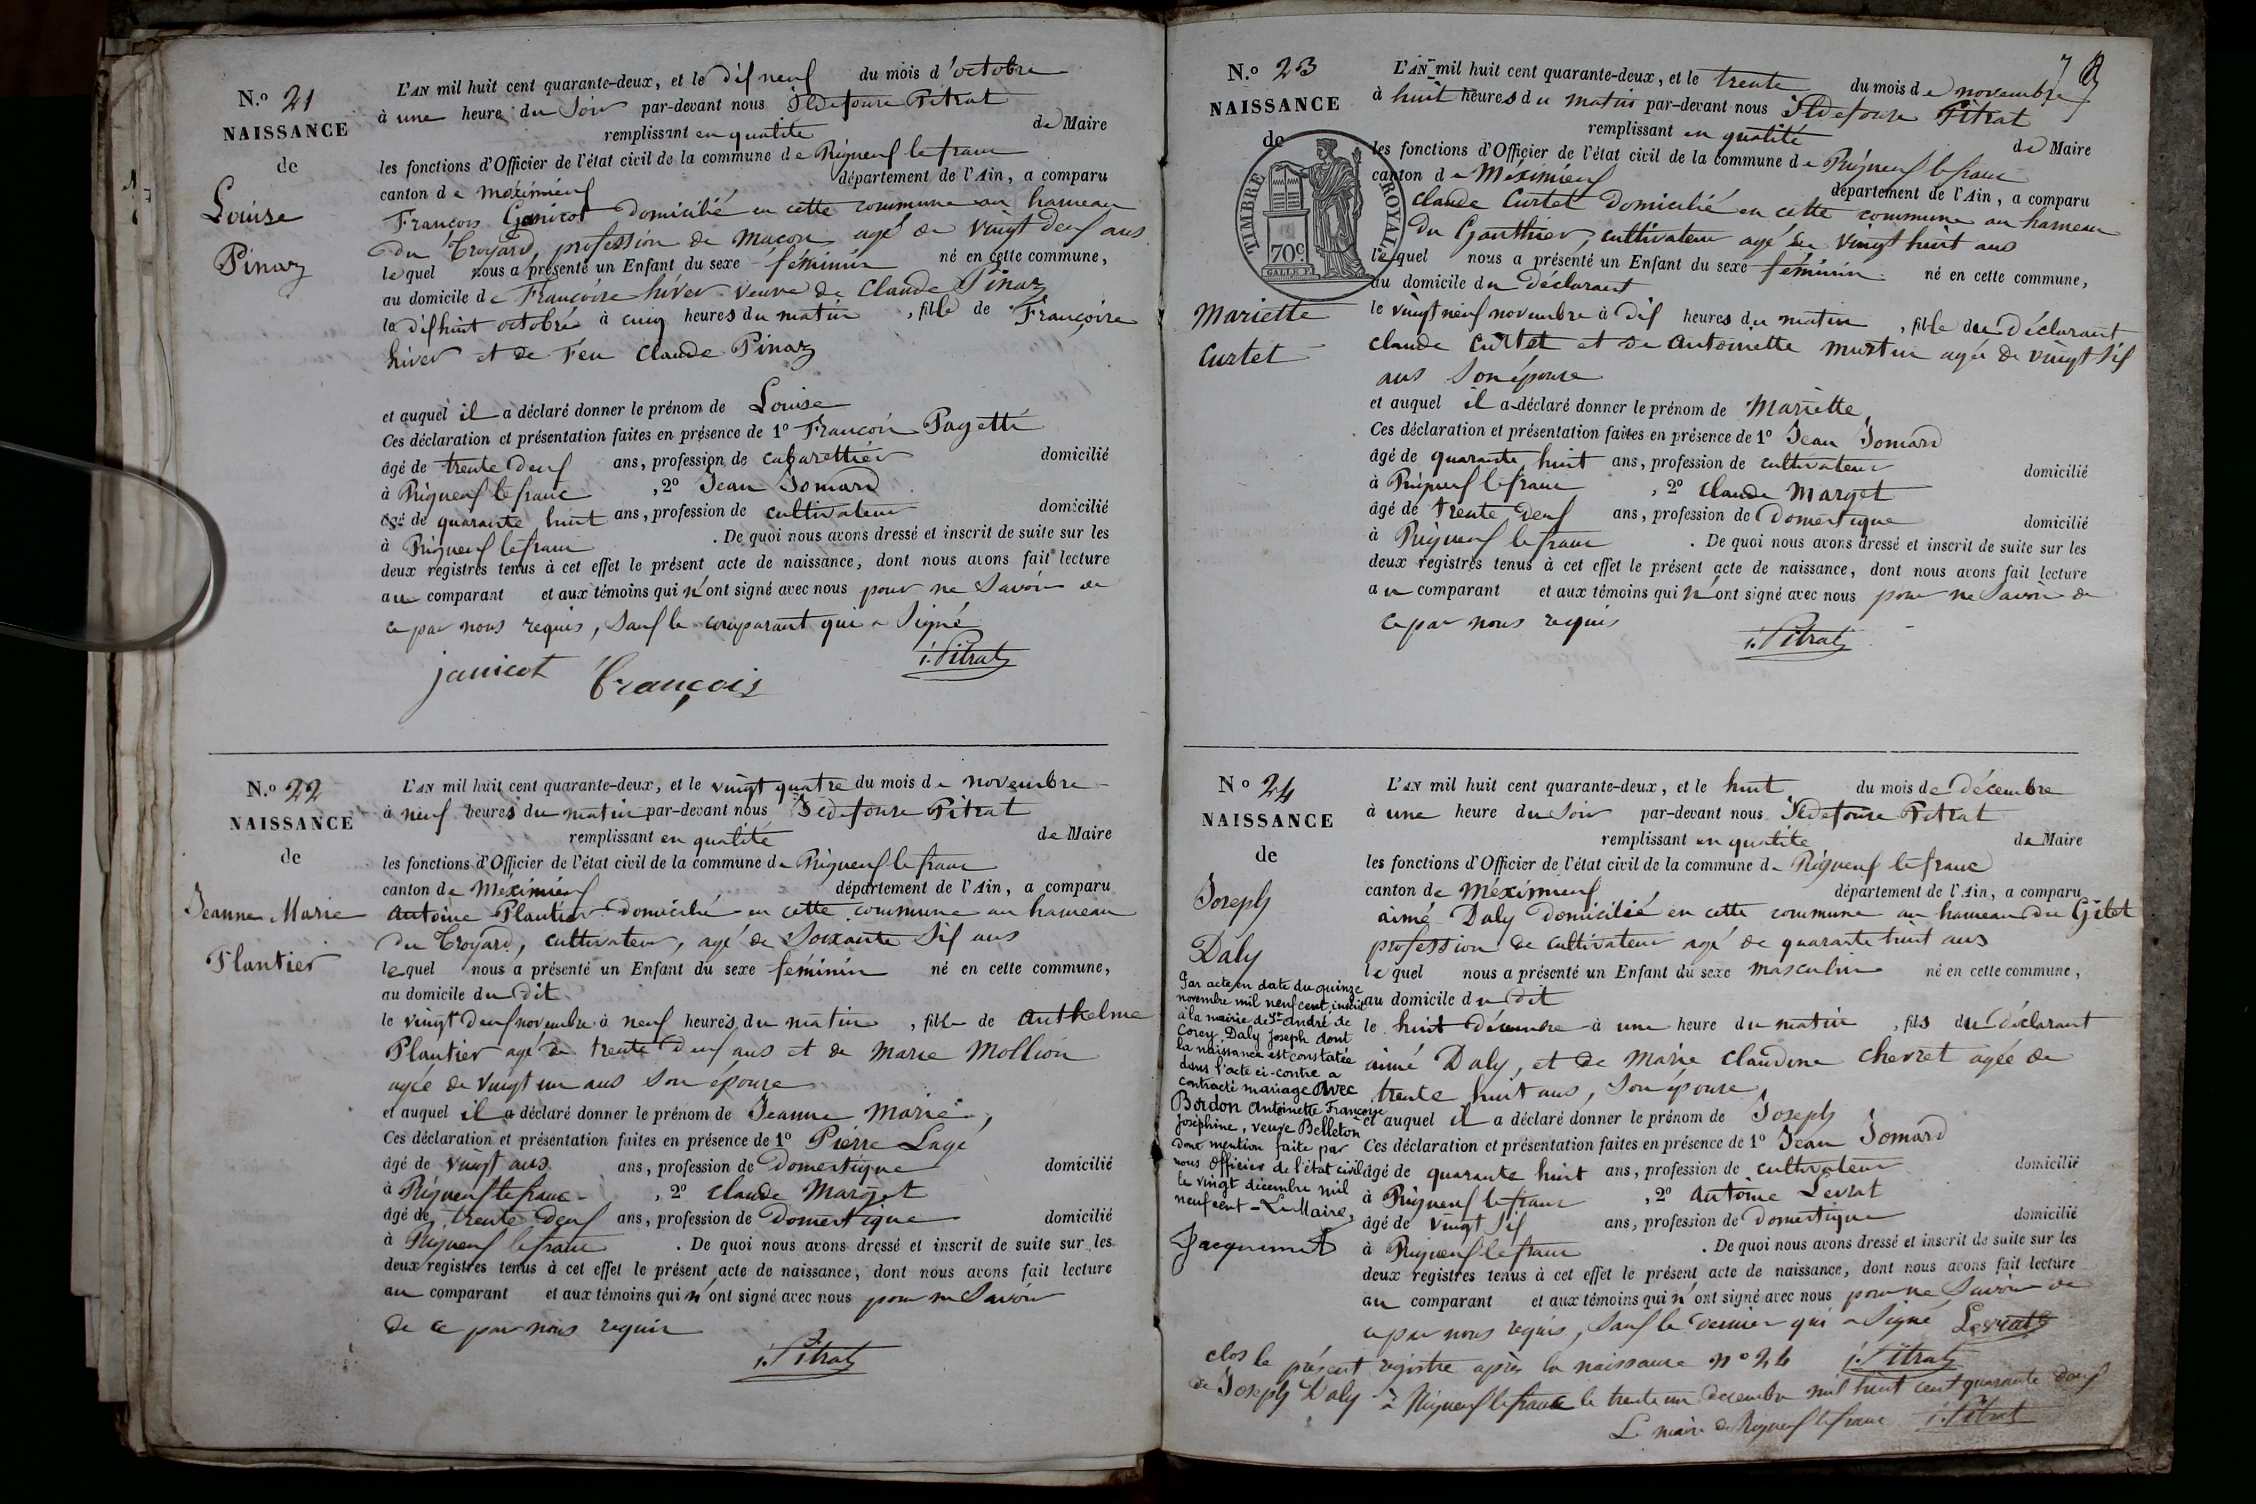 N.º 21
NAISSANCE
de
Louise
Pinaz
L'AN mil huit cent quarante-deux, et le dix neuf du mois d'octobre
à une heure du Soir par-devant nous Ildefonse Pitrat
remplissant en qualité de Maire
les fonctions d'Officier de l'état civil de la commune de Rigneux le franc
canton de Méximieux département de l'Ain, a comparu
François Genicot domicilié en cette commune au hameau
du Croyard, profession de Macon agé de vingt deux ans
lequel nous a présenté un Enfant du sexe féminin né en cette commune,
au domicile de Françoise hiver veuve de Claude Pinaz
le dixhuit octobre à cinq heures du matin, fille de Françoise
hiver et de feu Claude Pinaz
et auquel il a déclaré donner le prénom de Louise
Ces déclaration et présentation faites en présence de 1º François Pagette
âgé de trente deux ans, profession de cabarettier domicilié
à Rigneux le franc, 2º Jean Jomard
âgé de quarante huit ans, profession de cultivateur domicilié
à Rigneux le franc. De quoi nous avons dressé et inscrit de suite sur les
deux registres tenus à cet effet le présent acte de naissance, dont nous avons fait lecture
au comparant et aux témoins qui n'ont signé avec nous pour ne Savoir de
ce par nous requis, Sauf le comparant qui a Signé
janicot François
i. Pitrat
N.º 22
NAISSANCE
de
Jeanne Marie
Plantier
L'AN mil huit cent quarante-deux, et le vingt quatre du mois de novembre
à neuf heures du matin par-devant nous Ildefonse Pitrat
remplissant en qualité de Maire
les fonctions d'Officier de l'état civil de la commune de Rigneux le franc
canton de Meximieux département de l'Ain, a comparu
Antoine Plantier domicilié en cette commune au hameau
du Croyard, cultivateur, agé de Soixante Six ans
lequel nous a présenté un Enfant du sexe féminin né en cette commune,
au domicile du dit
le vingt deux novembre à neuf heures du matin, fille de Anthelme
Plantier agé de trente deux ans et de Marie Mollion
agée de vingt un ans Son épouse
et auquel il a déclaré donner le prénom de Jeanne Marie,
Ces déclaration et présentation faites en présence de 1º Pierre Lage
âgé de vingt ans ans, profession de Domestique domicilié
à Rigneux le franc, 2º Claude Marget
âgé de trente deux ans, profession de Domestique domicilié
à Rigneux le franc. De quoi nous avons dressé et inscrit de suite sur les
deux registres tenus à cet effet le présent acte de naissance, dont nous avons fait lecture
au comparant et aux témoins qui n'ont signé avec nous pour ne Savoir
de ce par nous requis
i. Pitrat
7
N.º 23
NAISSANCE
de
TIMBRE ROYAL
70c
Mariette
Curtet
L'AN mil huit cent quarante-deux, et le trente du mois de novembre
à huit heures du matin par-devant nous Ildefonse Pitrat
remplissant en qualité de Maire
les fonctions d'Officier de l'état civil de la commune de Rigneux le franc
canton de Méximieux département de l'Ain, a comparu
Claude Curtet domicilié en cette commune au hameau
du Gonthier, cultivateur agé de vingt huit ans
lequel nous a présenté un Enfant du sexe féminin né en cette commune,
au domicile du déclarant
le vingt neuf novembre à dix heures du matin, fille du déclarant
Claude Curtet et de Antoinette Martin agée de vingt Six
ans Son épouse
et auquel il a déclaré donner le prénom de Mariette
Ces déclaration et présentation faites en présence de 1º Jean Jomard
âgé de quarante huit ans, profession de cultivateur domicilié
à Rigneux le franc, 2º Claude Marget
âgé de trente deux ans, profession de Domestique domicilié
à Rigneux le franc. De quoi nous avons dressé et inscrit de suite sur les
deux registres tenus à cet effet le présent acte de naissance, dont nous avons fait lecture
au comparant et aux témoins qui n'ont signé avec nous pour ne Savoir de
ce par nous requis
i. Pitrat
Nº 24
NAISSANCE
de
Joseph
Daly
Par acte en date du quinze
novembre mil neuf cent, inscrit
à la mairie de St André de
Corcy, Daly Joseph dont
la naissance est constatée
dans l'acte ci-contre a
contracté mariage avec
Bordon Antoinette Françoise
Joséphine, veuve Belleton
dont mention faite par
nous Officier de l'état civil
le vingt décembre mil
neuf cent - Le Maire,
Jacquemet
L'AN mil huit cent quarante-deux, et le huit du mois de décembre
à une heure du Soir par-devant nous Ildefonse Pitrat
remplissant en qualité de Maire
les fonctions d'Officier de l'état civil de la commune de Rigneux le franc
canton de Méximieux département de l'Ain, a comparu
aimé Daly domicilié en cette commune au hameau du Gilet
profession de cultivateur agé de quarante huit ans
lequel nous a présenté un Enfant du sexe masculin né en cette commune,
au domicile du dit
le huit décembre à une heure du matin, fils du déclarant
aimé Daly, et de Marie Claudine Chevret agée de
trente huit ans, Son épouse,
et auquel il a déclaré donner le prénom de Joseph
Ces déclaration et présentation faites en présence de 1º Jean Jomard
âgé de quarante huit ans, profession de cultivateur domicilié
à Rigneux le franc, 2º Antoine Levrat
âgé de vingt Six ans, profession de Domestique domicilié
à Rigneux le franc. De quoi nous avons dressé et inscrit de suite sur les
deux registres tenus à cet effet le présent acte de naissance, dont nous avons fait lecture
au comparant et aux témoins qui n'ont signé avec nous pour ne Savoir de
ce par nous requis, Sauf le dernier qui a Signé Levrat
i. Pitrat
clos le présent registre après la naissance nº 24
de Joseph Daly à Rigneux le franc le trente un décembre mil huit cent quarante deux
Le maire de Rigneux le franc i. Pitrat